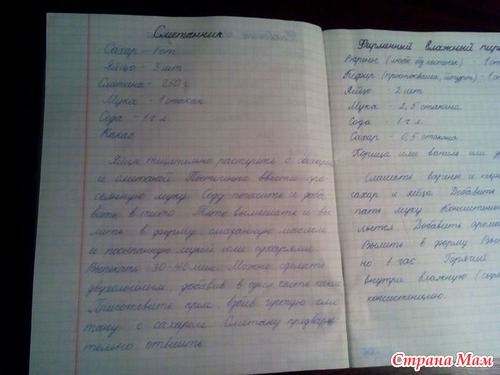 Сметанник
Сахар - 1 ст.
Яйцо - 3 шт.
Сметана - 250 г.
Мука - 1 стакан
Сода - 1 ч. л.
Какао
Яйца тщательно растереть с сахаром
и сметаной. Постепенно ввести про-
сеянную муку. Соду погасить и доба-
вить в тесто. Тесто вымешать и вы-
лить в форму, смазанную маслом
и посыпанную мукой или сухарями.
Выпекать 30-40 мин. Можно сделать
двухслойным, добавив в одну часть какао
Приготовить крем, взбив густую сме-
тану с сахаром. Сметану предвари-
тельно отвесить.
Фирменный влажный пирог
Варенье (любое без косточек) - 1 ст
Кефир (простокваша, йогурт) - 1 с
Яйцо 2 шт
Мука - 2,5 стакана
Сода - 1 ч л
Сахар - 0,5 стакана
Корица или ваниль или
Смешать варенье и
сахар и яйца. Добавить
муку. Консистенция
Добавить
Вылить в форму. Вы
но 1 час. Горячий
внутри влажную (сыр
консистенцию.
Страна Мам